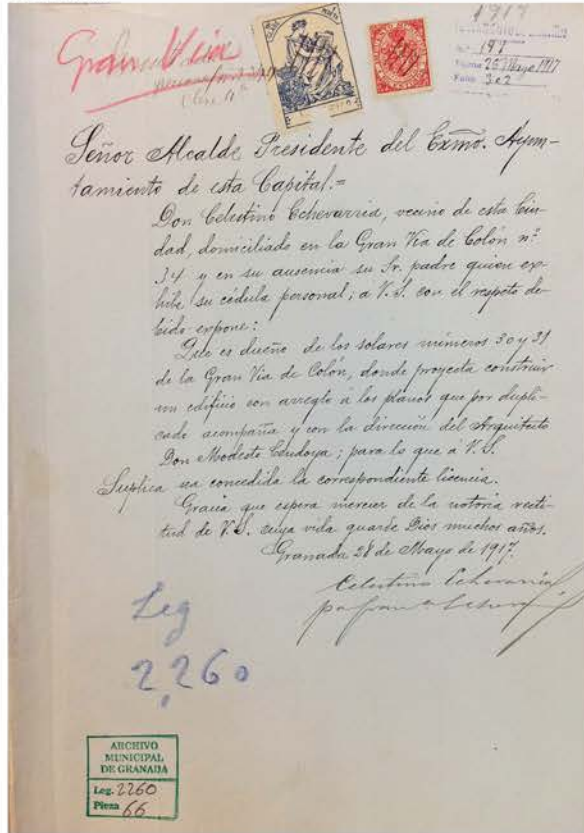 1917
Gran Vía
Nº 191
26 Mayo 1917
Folio 302
Señor Alcalde Presidente del Exmo. Ayun-
tamiento de esta Capital.=
Don Celestino Echevarria, vecino de esta Ciu-
dad, domiciliado en la Gran Via de Colón nº
34 y en su ausencia su Sr. padre quien ex-
hibe su cédula personal; a V. S. con el respeto de-
bido expone:
Que es dueño de los solares números 30 y 31
de la Gran Via de Colón, donde proyecta construir
un edificio con arreglo á los planos que por dupli-
cado acompaña y con la dirección del Arquitecto
Don Modesto Cendoya; para lo que á V. S.
Suplica sea concedida la correspondiente licencia.
Gracia que espera merecer de la notoria recti-
tud de V. S. cuya vida guarde Dios muchos años.
Granada 28 de Mayo de 1917.
Celestino Echevarria
Leg
2,260
ARCHIVO
MUNICIPAL
DE GRANADA
Leg. 2260
Pieza 66